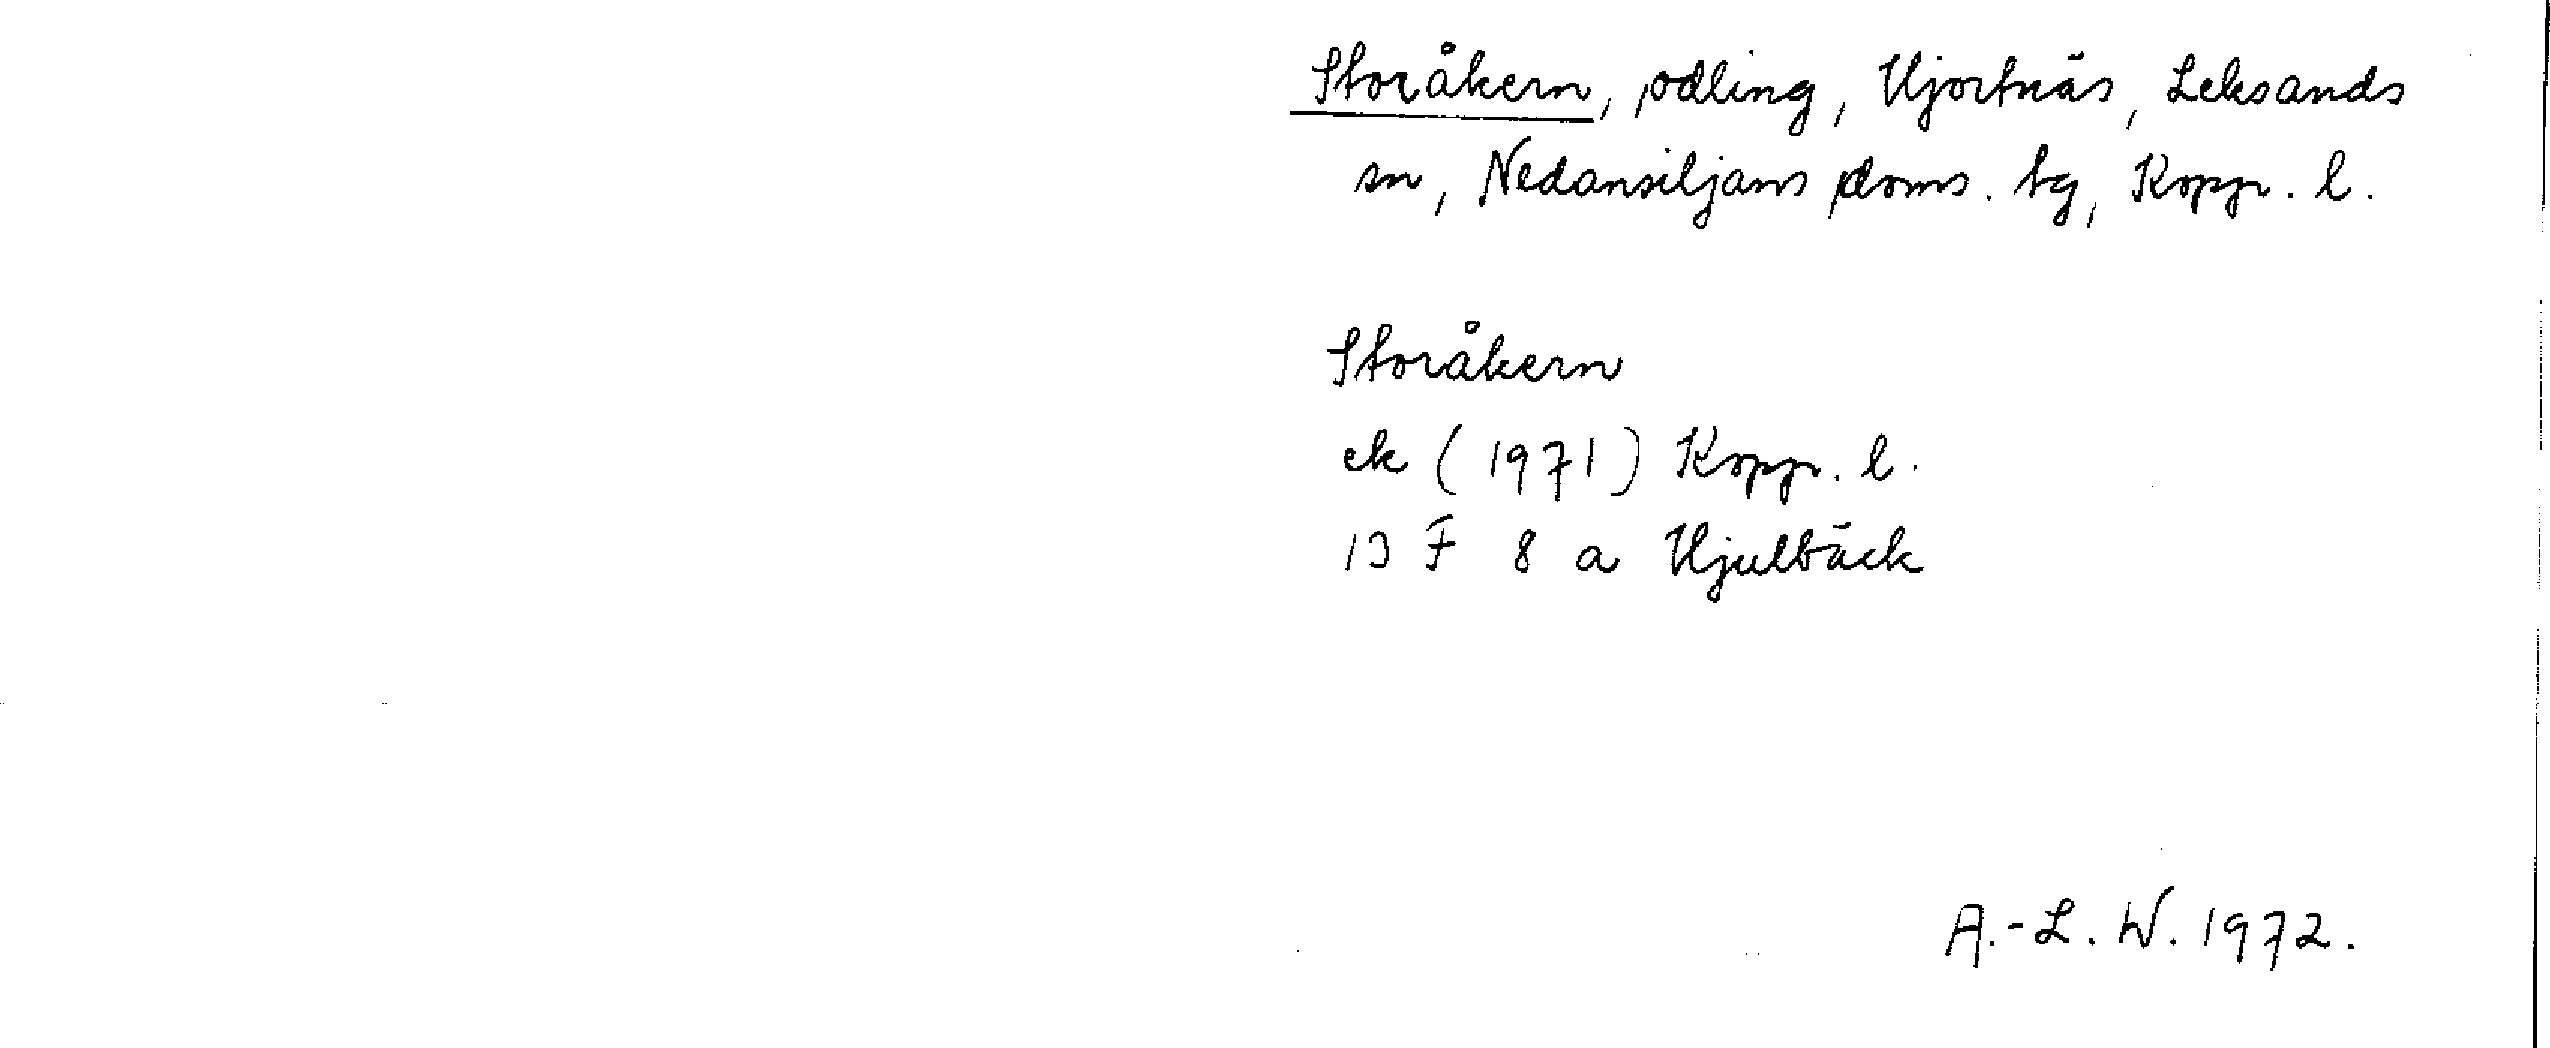 Storåkern, odling, Hjortnäs, Leksands
sn, Nedansiljans doms. tg, Kopp. l.
Storåkern
ek (1971) Kopp. l.
13 F 8 a Hjulbäck
A.-L. W. 1972.